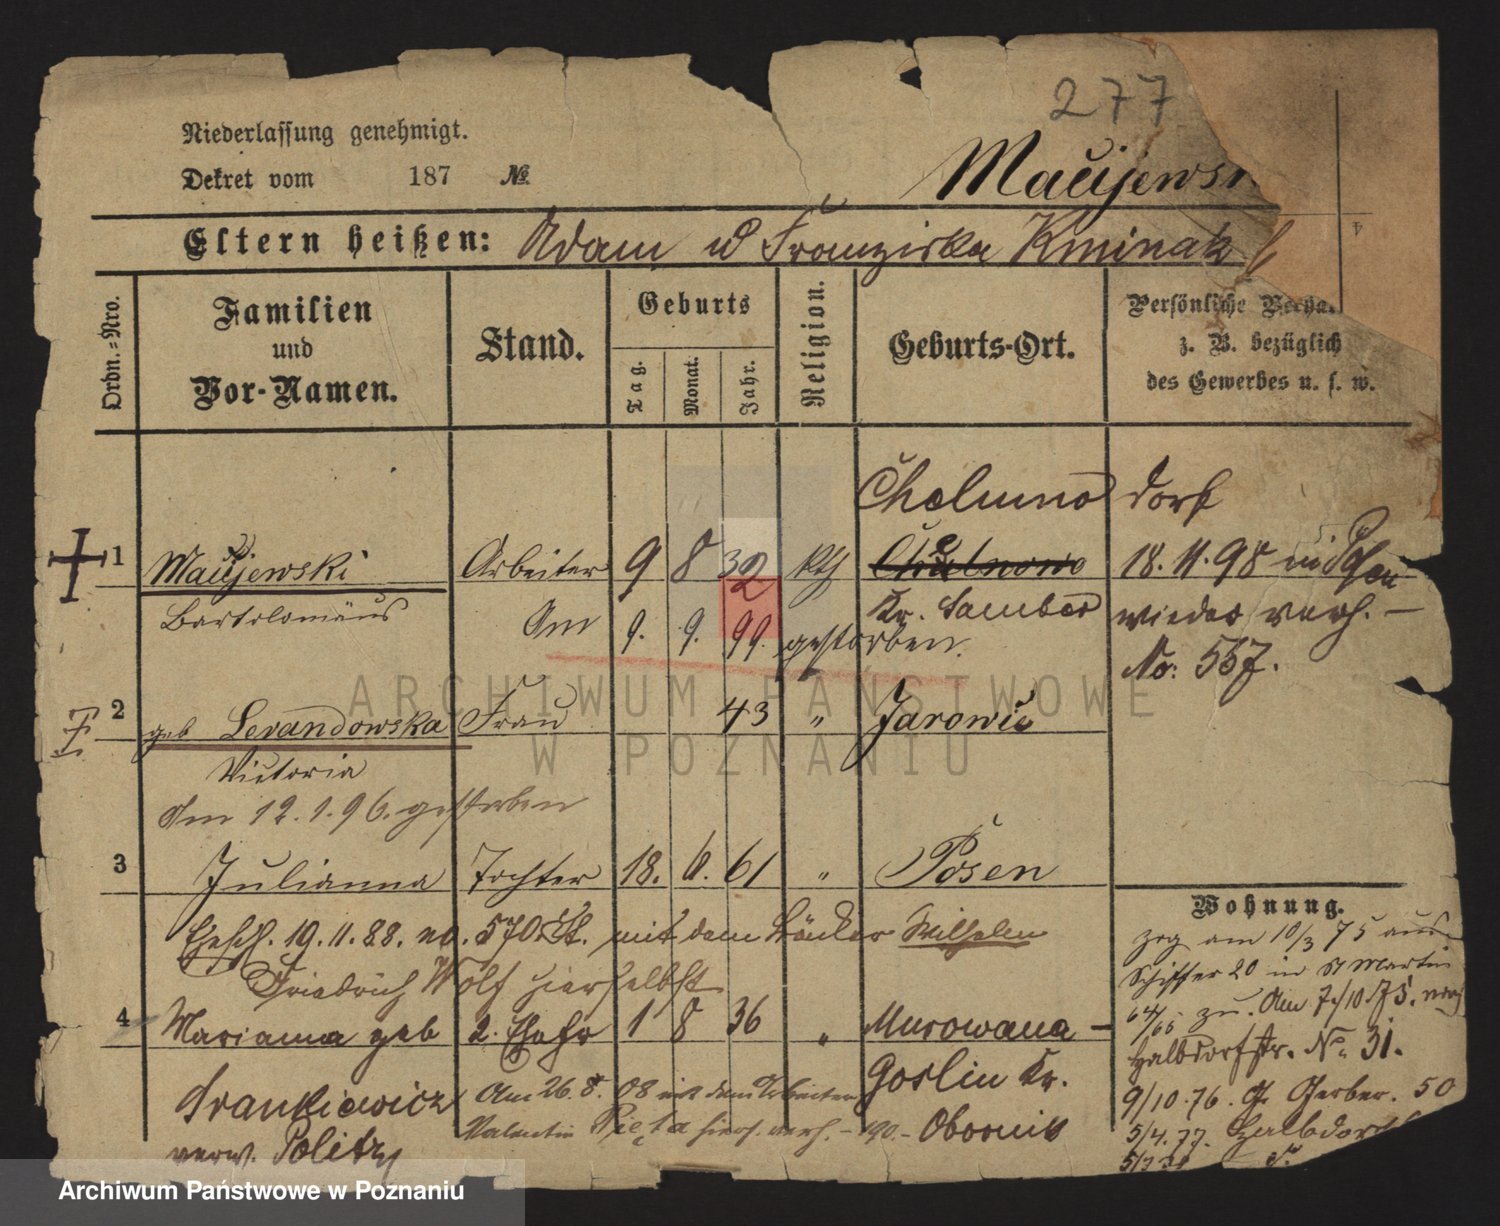 277
Niederlassung genehmigt.
Dekret vom 187 №
Maciejewsk
Eltern heißen: Adam u Franziska Kminak
Ordn.=Nro.
Familien und Vor-Namen.
Stand.
Geburts
Tag.
Monat.
Jahr.
Religion.
Geburts-Ort.
Persönliche
z. B. bezüglich
des Gewerbes u. s. w.
Chelmno dorf
1 Maciejewski Arbeiter 9 8 32 kth
18. 11. 98 in Posen
Bartolomäus
Kr. Sambor
wieder verh. —
Am 9. 9. 99. gestorben.
No: 557.
2 geb Levandowska Frau 43 " Jarowic
Victoria
Am 12. 1. 96. gestorben
3 Julianna Tochter 18. 6. 61 " Posen
Ehesch. 19. 11. 88. no. 570 mit dem Bäcker Wilhelm
Friedrich Wolf hierselbst
4 Marianna geb 2. Ehefr 1 8 36 " Murowana-
Goslin Kr.
Obornik
Frankiewicz
verw. Politzy
Am 26. 8. 08 mit dem Arbeiter
Valentin Pięta hiers. verh. —
Wohnung.
zog am 10/3 75 aus
Schiffer 20 in St Martin
64/65 zu. Am 7/10 75. nach
Halbdorfstr. No 31.
9/10. 76. Gr Gerber. 50
5/4. 77. Halbdorf
ARCHIWUM PAŃSTWOWE
W POZNANIU
Archiwum Państwowe w Poznaniu